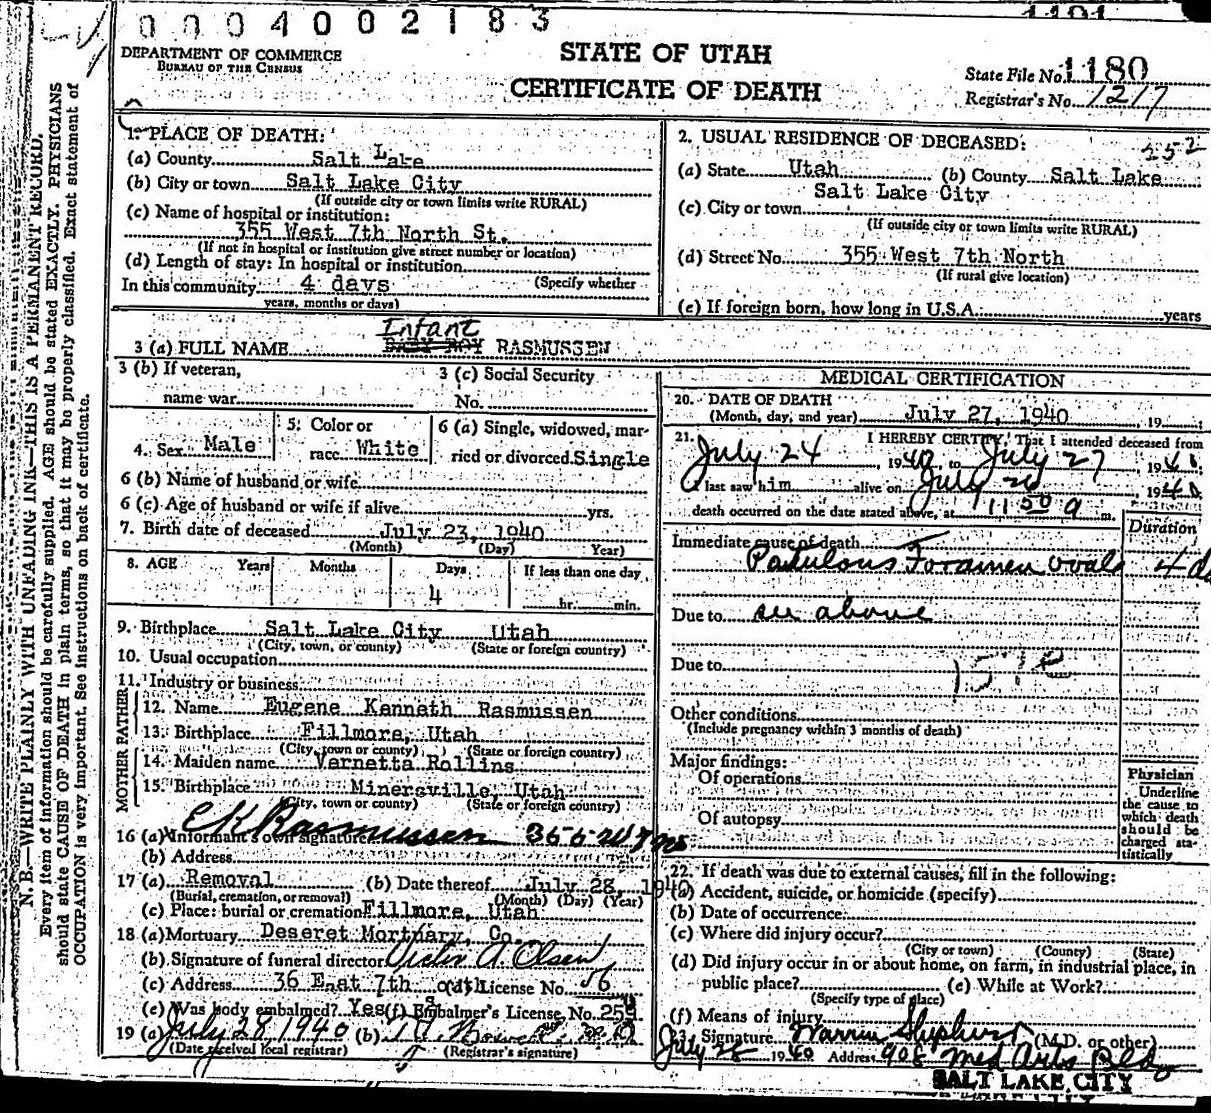 0004002183
DEPARTMENT OF COMMERCE
BUREAU OF THE CENSUS
STATE OF UTAH
CERTIFICATE OF DEATH
State File No. 1180
Registrar's No. 1217
N. B.—WRITE PLAINLY WITH UNFADING INK—THIS IS A PERMANENT RECORD.
Every item of information should be carefully supplied. AGE should be stated EXACTLY. PHYSICIANS
should state CAUSE OF DEATH in plain terms, so that it may be properly classified. Exact statement of
OCCUPATION is very important. See instructions on back of certificate.
1. PLACE OF DEATH:
(a) County Salt Lake
(b) City or town Salt Lake City
(If outside city or town limits write RURAL)
(c) Name of hospital or institution:
355 West 7th North St.
(If not in hospital or institution give street number or location)
(d) Length of stay: In hospital or institution
(Specify whether
In this community 4 days
years, months or days)
2. USUAL RESIDENCE OF DECEASED: 252
(a) State Utah (b) County Salt Lake
Salt Lake City
(c) City or town
(If outside city or town limits write RURAL)
(d) Street No. 355 West 7th North
(If rural give location)
(e) If foreign born, how long in U.S.A. years
Infant
3 (a) FULL NAME BABY BOY RASMUSSEN
3 (b) If veteran,
name war
3 (c) Social Security
No.
4. Sex Male
5. Color or
race White
6 (a) Single, widowed, mar-
ried or divorced Single
6 (b) Name of husband or wife
6 (c) Age of husband or wife if alive yrs.
7. Birth date of deceased July 23, 1940
(Month) (Day) Year)
8. AGE Years Months Days If less than one day
4 hr. min.
9. Birthplace Salt Lake City Utah
(City, town, or county) (State or foreign country)
10. Usual occupation
11. Industry or business
FATHER
12. Name Eugene Kenneth Rasmussen
13. Birthplace Fillmore, Utah
(City, town or county) (State or foreign country)
MOTHER
14. Maiden name Varnetta Rollins
15. Birthplace Minersville, Utah
(City, town or county) (State or foreign country)
16 (a) Informant's own signature E K Rasmussen 355 W 7 No
(b) Address
17 (a) Removal (b) Date thereof July 28, 1940
(Burial, cremation, or removal) (Month) (Day) (Year)
(c) Place: burial or cremation Fillmore, Utah
18 (a) Mortuary Deseret Mortuary, Co.
(b) Signature of funeral director Victor A. Olsen
(c) Address 36 East 7th South (d) License No. 56
(e) Was body embalmed? Yes (f) Embalmer's License, No. 259
19 (a) July 28, 1940 (b)
(Date received local registrar) (Registrar's signature)
MEDICAL CERTIFICATION
20. DATE OF DEATH
(Month, day, and year) July 27, 1940, 19
21. I HEREBY CERTIFY, That I attended deceased from
July 24, 1940, to July 27, 1940;
I last saw him alive on July 26, 1940
death occurred on the date stated above, at 11 50 a m.
Duration
Immediate cause of death
Patulous Foramen ovale 4 da
Due to see above
Due to
157 e
Other conditions
(Include pregnancy within 3 months of death)
Major findings:
Of operations
Of autopsy
Physician
Underline
the cause to
which death
should be
charged sta-
tistically
22. If death was due to external causes, fill in the following:
(a) Accident, suicide, or homicide (specify)
(b) Date of occurrence
(c) Where did injury occur?
(City or town) (County) (State)
(d) Did injury occur in or about home, on farm, in industrial place, in
public place? (e) While at Work?
(Specify type of place)
(f) Means of injury
23. Signature Warren Shepherd (M.D. or other)
July 28 1940 Address 908 Med Arts Bldg
SALT LAKE CITY